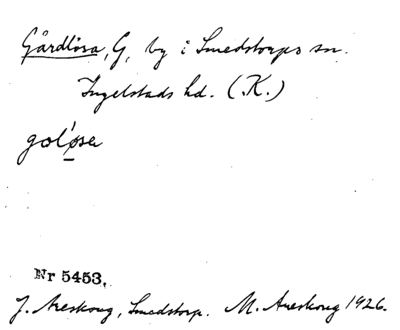 Gårdlösa, G, by i Smedstorps sn.
Ingelstads hd. (K.)
gol'øsa
Nr 5453.
J. Areskoug, Smedstorp. M. Areskoug 1926.